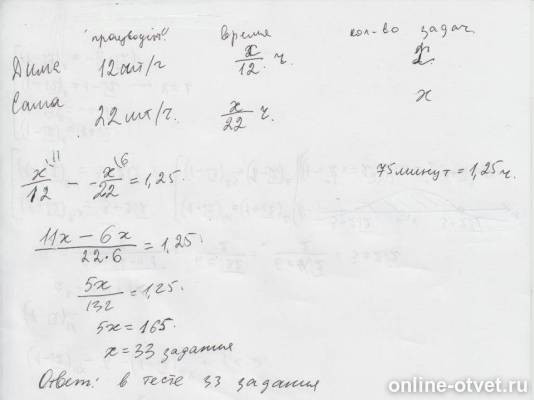 "производит." время кол-во задач
Дима 12 шт/г x/12 ч. x
Саша 22 шт/г. x/22 ч. x
x\11/12 - x\6/22 = 1,25. 75 минут = 1,25 ч.
11x - 6x / 22·6 = 1,25.
5x/132 = 1,25.
5x = 165.
x = 33 задания
Ответ: в тесте 33 задания
online-otvet.ru